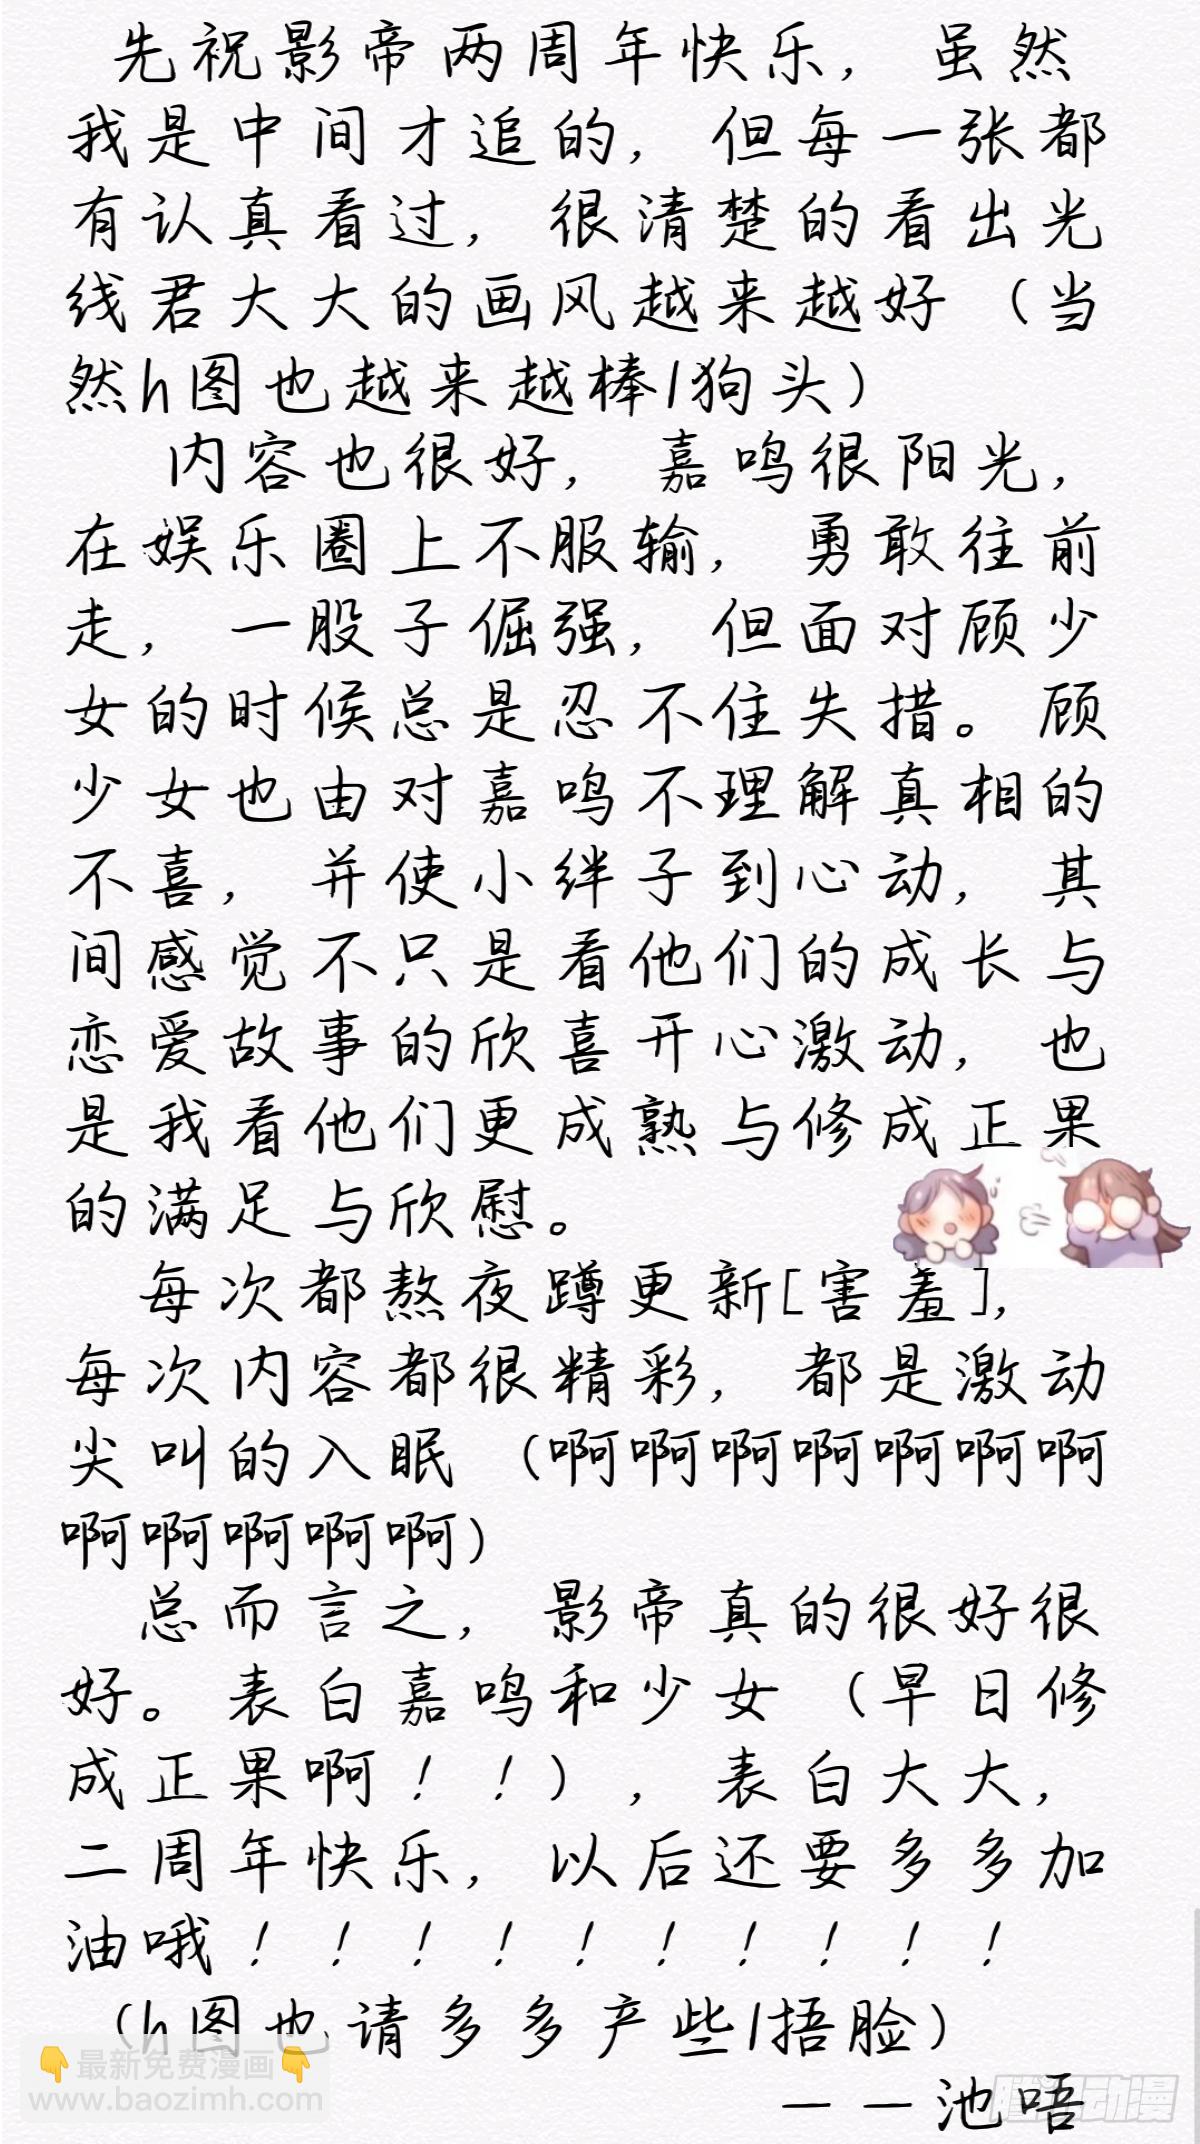 先祝影帝两周年快乐，虽然
我是中间才追的，但每一张都
有认真看过，很清楚的看出光
线君大大的画风越来越好（当
然h图也越来越棒/狗头）
内容也很好，嘉鸣很阳光，
在娱乐圈上不服输，勇敢往前
走，一股子倔强，但面对顾少
女的时候总是忍不住失措。顾
少女也由对嘉鸣不理解真相的
不喜，并使小绊子到心动，其
间感觉不只是看他们的成长与
恋爱故事的欣喜开心激动，也
是我看他们更成熟与修成正果
的满足与欣慰。
每次都熬夜蹲更新[害羞]，
每次内容都很精彩，都是激动
尖叫的入眠（啊啊啊啊啊啊啊
啊啊啊啊啊）
总而言之，影帝真的很好很
好。表白嘉鸣和少女（早日修
成正果啊！！），表白大大，
二周年快乐，以后还要多多加
油哦！！！！！！！！！！
（h图也请多多产些/捂脸）
——池唔
👇最新免费漫画👇
www.baozimh.com
腾讯动漫